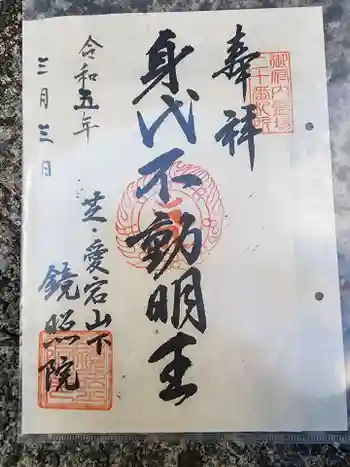 奉祥
御府内霊場
二十番札所
身代不動明王
芝・愛宕山下
鏡照院
令和五年
三月三日